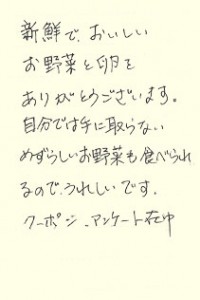 新鮮で、おいしい
お野菜と卵を
ありがとうございます。
自分では手に取らない
めずらしいお野菜も食べられ
るので、うれしいです。
クーポン、アンケート在中